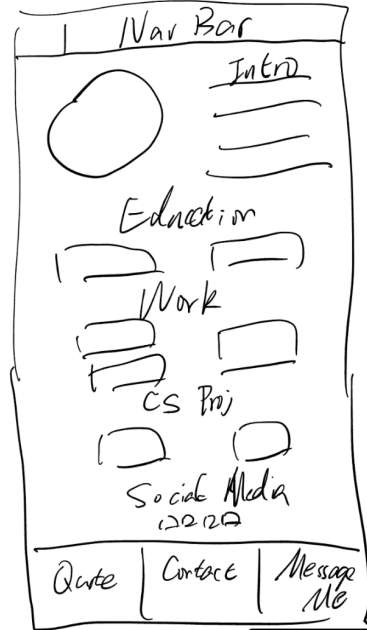 Nav Bar
Intro
Education
Work
CS Proj
Social Media
Quote
Contact
Message
Me